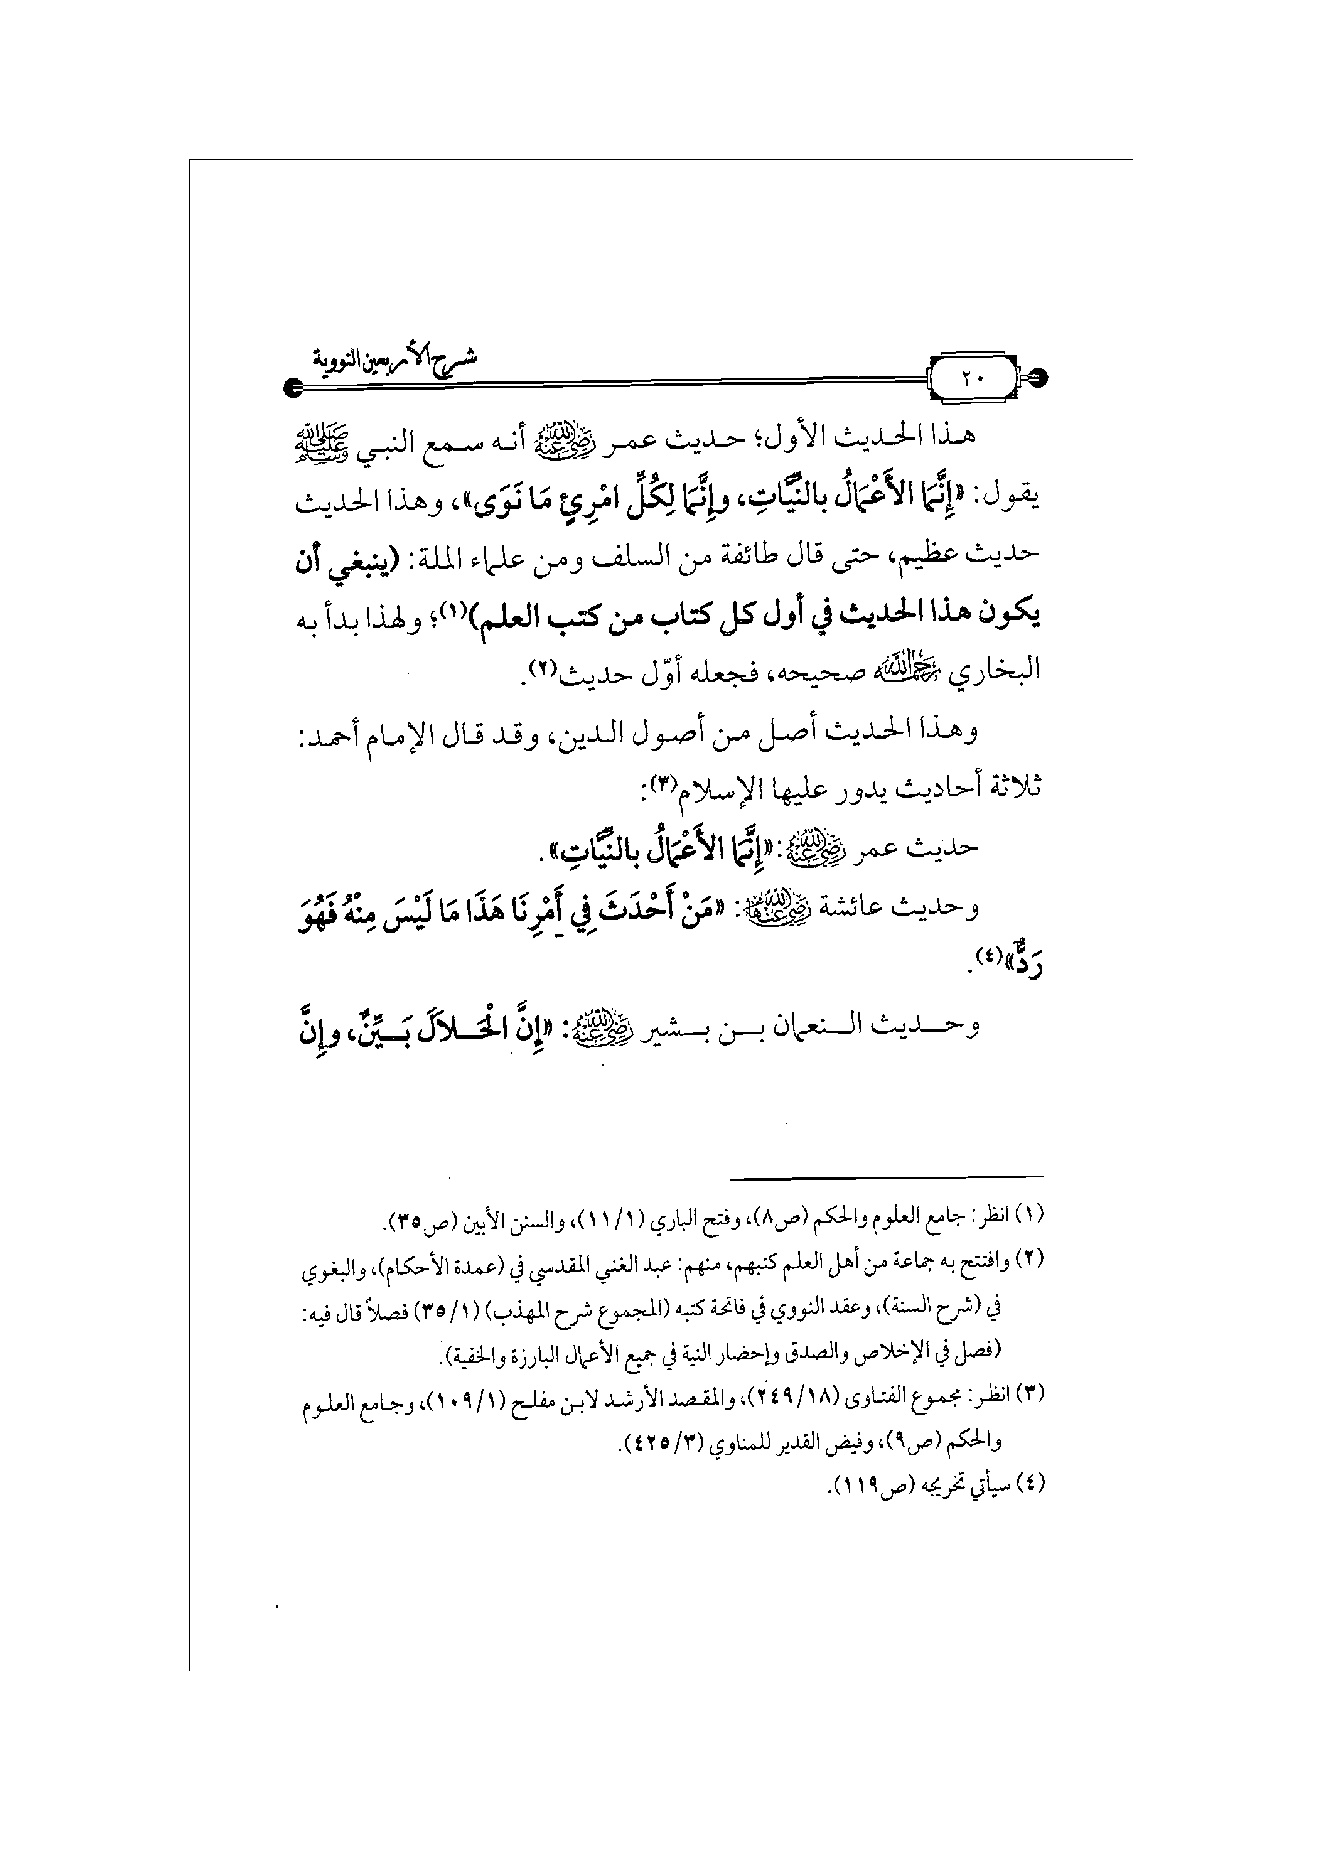 شرح الأربعين النووية
٢٠
هذا الحديث الأول؛ حديث عمر رضي الله عنه أنه سمع النبي صلى الله عليه وسلم
يقول: «إِنَّمَا الأَعْمَالُ بالنِّيَّاتِ، وإِنَّمَا لِكُلِّ امْرِئٍ مَا نَوَى»، وهذا الحديث
حديث عظيم، حتى قال طائفة من السلف ومن علماء الملة: (ينبغي أن
يكون هذا الحديث في أول كل كتاب من كتب العلم)(١)؛ ولهذا بدأ به
البخاري رحمه الله صحيحه، فجعله أوّل حديث(٢).
وهذا الحديث أصل من أصول الدين، وقد قال الإمام أحمد:
ثلاثة أحاديث يدور عليها الإسلام(٣):
حديث عمر رضي الله عنه: «إِنَّمَا الأَعْمَالُ بالنِّيَّاتِ».
وحديث عائشة رضي الله عنها: «مَنْ أَحْدَثَ فِي أَمْرِنَا هَذَا مَا لَيْسَ مِنْهُ فَهُوَ
رَدٌّ»(٤).
وحديث النعمان بن بشير رضي الله عنه: «إِنَّ الْحَلاَلَ بَيِّنٌ، وإِنَّ
(١) انظر: جامع العلوم والحكم (ص٨)، وفتح الباري (١/ ١١)، والسنن الأبين (ص٣٥).
(٢) وافتتح به جماعة من أهل العلم كتبهم، منهم: عبد الغني المقدسي في (عمدة الأحكام)، والبغوي
في (شرح السنة)، وعقد النووي في فاتحة كتبه (المجموع شرح المهذب) (١/ ٣٥) فصلاً قال فيه:
(فصل في الإخلاص والصدق وإحضار النية في جميع الأعمال البارزة والخفية).
(٣) انظر: مجموع الفتاوى (١٨/ ٢٤٩)، والمقصد الأرشد لابن مفلح (١/ ١٠٩)، وجامع العلوم
والحكم (ص٩)، وفيض القدير للمناوي (٣/ ٤٢٥).
(٤) سيأتي تخريجه (ص١١٩).